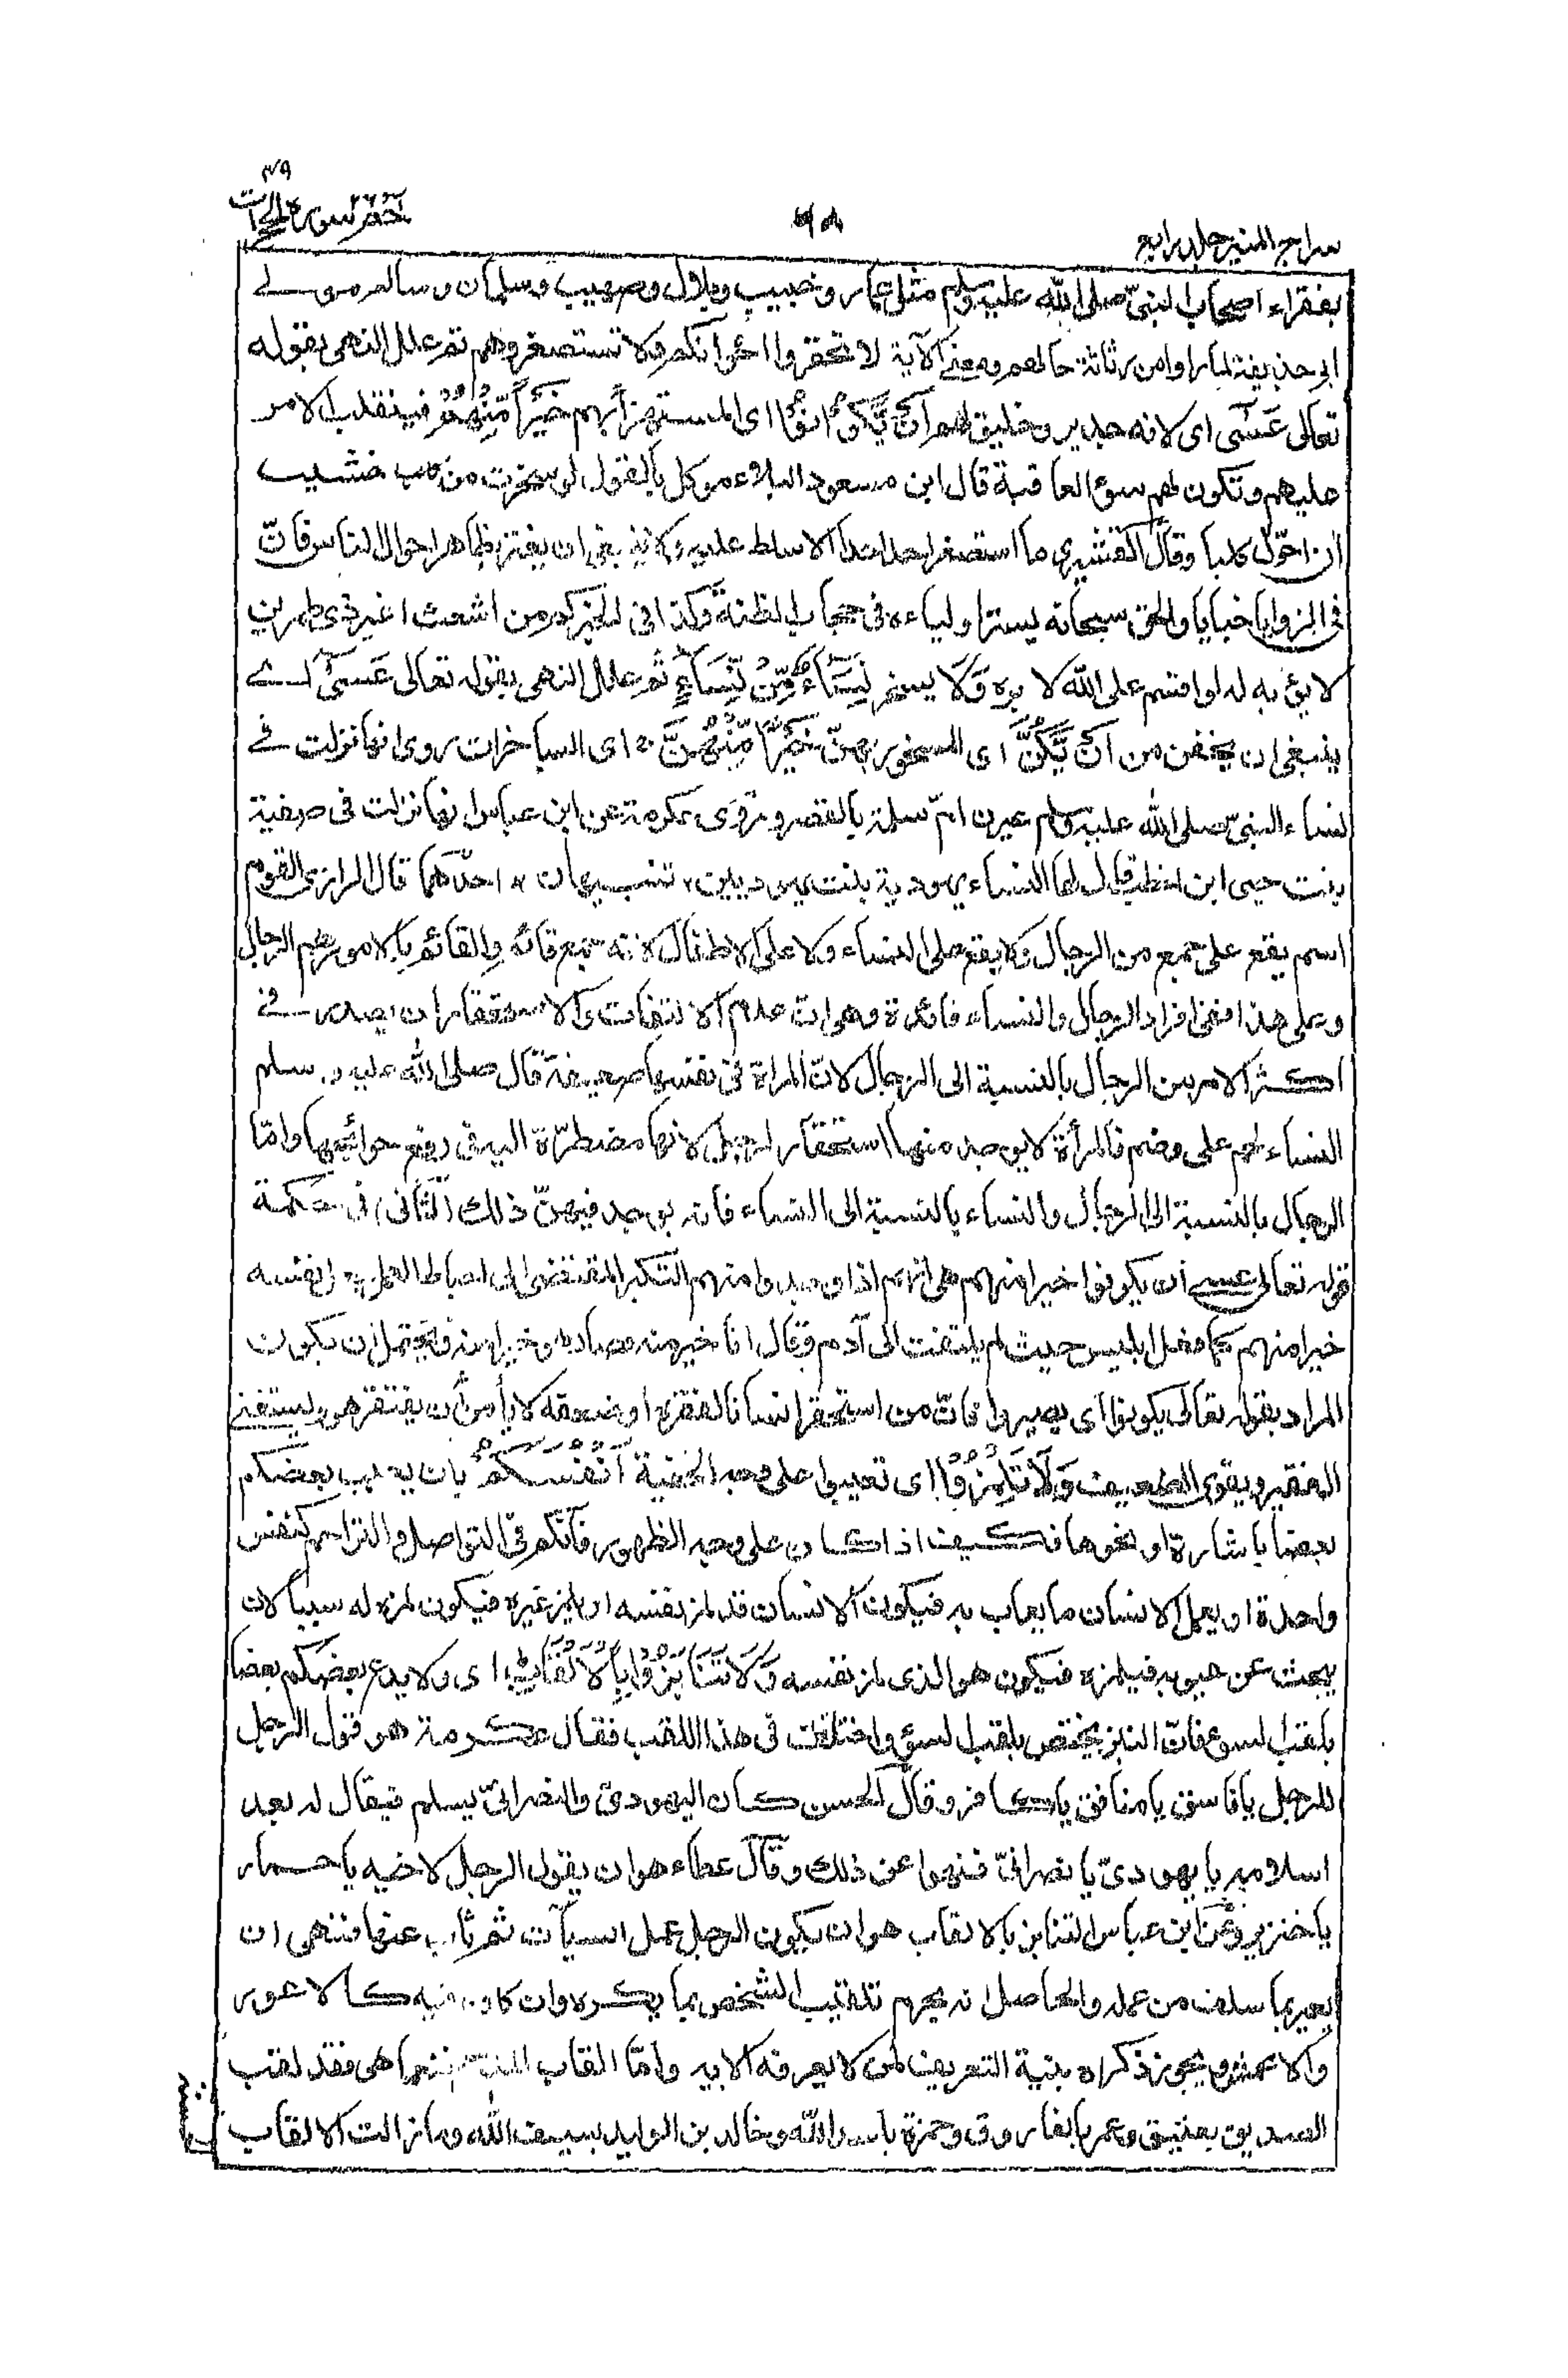 ۴۹
حٰمٓ ۲۶ سورة الحجرات
سراج المنير جلد رابع
بفقراء اصحاب النبىّ صلى الله عليه وسلم مثل عمار وخبيب وبلال وصهيب وسلمان وسالم مولى
ابى حذيفة لما راوا من رثاثة حالهم ومعنى الآية لا تحقروا اخوانكم ولا تستصغروهم ثم علل النهى بقوله
تعالى عَسٰٓى اى لانه جدير وخليق لهم اَنْ يَّكُوْنُوْا اى المستهزأ بهم خَيْرًا مِّنْهُمْ فينقلب الامر
عليهم وتكون لهم سوء العاقبة قال ابن مسعود البلاء موكل بالقول لو سخرت من كلب خشيت
أن احوّل كلبا وقال القشيرى ما استصغر احد احدا الا سلط عليه ولا ينبغى ان يغتر بظاهر احوال الناس فانّ
فى الزوايا خبايا والحق سبحانه يستر اولياءه فى حجاب الظنة وكذا فى الخبر كم من اشعث اغبر ذى طمرين
لا يؤبه له لو اقسم على الله لابره وَلَا يسخر نِسَآءٌ مِّنْ نِّسَآءٍ ثم علل النهى بقوله تعالى عَسٰٓى اى
ينبغى ان يخفن من اَنْ يَّكُنَّ اى المسخور بهنّ خَيْرًا مِّنْهُنَّ ج اى الساخرات روى انها نزلت فى
نساء النبىّ صلى الله عليه وسلم عيرن امّ سلمة بالقصر وروى عكرمة عن ابن عباس انها نزلت فى صفية
بنت حيى ابن اخطب قال لها النساء يهودية بنت يهوديين، تنبيهان * احدهما قال الرازى القوم
اسم يقع على جمع من الرجال ولا يقع على النساء ولا على الاطفال لانه جمع قائم والقائم بالامور هم الرجال
وعلى هذا ففى افراد الرجال والنساء فائدة وهو ان عدم الالتفات والاستحقار ان يصدر فى
اكثر الامر من الرجال بالنسبة الى الرجال لانّ المراة فى نفسها ضعيفة قال صلى الله عليه وسلم
النساء لحم على وضم فالمرأة لا يوجد منها استحقار لرجل لانها مضطرّة اليه فى رفع حوائجها وامّا
الرجال بالنسبة الى الرجال والنساء بالنسبة الى النساء فانه يوجد فيهنّ ذلك (الثانى) فى حكمة
قوله تعالى عسى أن يكونوا خيرا منهم هى انهم اذا وجدوا منهم التكبر المقتضى الى احباط العمل نفسه
خيرا منهم كما فعل ابليس حيث لم يلتفت الى آدم وقال انا خير منه فصار هو خيرا منه ويحتمل ان يكون
المراد بقوله تعالى يكونوا اى يصيروا فانّ من استحقر انسانا لفقره او ضعفه لا يأمن أن يفتقر هو ويستغنى
الفقير ويقوى الضعيف وَلَا تَلْمِزُوْٓا اى تعيبوا على وجه الخفية اَنْفُسَكُمْ بان يعيب بعضكم
بعضا باشارة او نحوها فكيف اذا كان على وجه الظهور فانّكم فى التواصل والتراحم كنفس
واحدة او يعمل الانسان ما يعاب به فيكون الانسان قد لمز نفسه او يلمز غيره فيكون لمزه له سببا لان
يبحث عن عيوبه فيلمزه فيكون هو الذى لمز نفسه وَلَا تَنَابَزُوْا بِالْاَلْقَابِ ط اى ولا يدع بعضكم بعضا
بلقب السوء فانّ النبز يختص بلقب السوء واختلفت فى هذا اللقب فقال عكرمة هو قول الرجل
للرجل يا فاسق يا منافق يا كافر وقال الحسن كان اليهودىّ والنصرانىّ يسلم فيقال له بعد
اسلامه يا يهودىّ يا نصرانىّ فنهوا عن ذلك وقال عطاء هو ان يقول الرجل لاخيه يا حمار
يا خنزير وعن ابن عباس التنابز بالالقاب هو ان يكون الرجل عمل السيآت ثم تاب عنها فنهى ان
يعير بما سلف من عمله والحاصل انه يحرم تلقيب الشخص بما يكره وان كان فيه كالاعور
والاعمش ويجوز ذكره بنية التعريف لمن لا يعرفه الا به وامّا القاب المدح فنعما هى فقد لقب
الصديق بعتيق وعمر بالفاروق وحمزة باسد الله وخالد بن الوليد بسيف الله وما زالت الالقاب